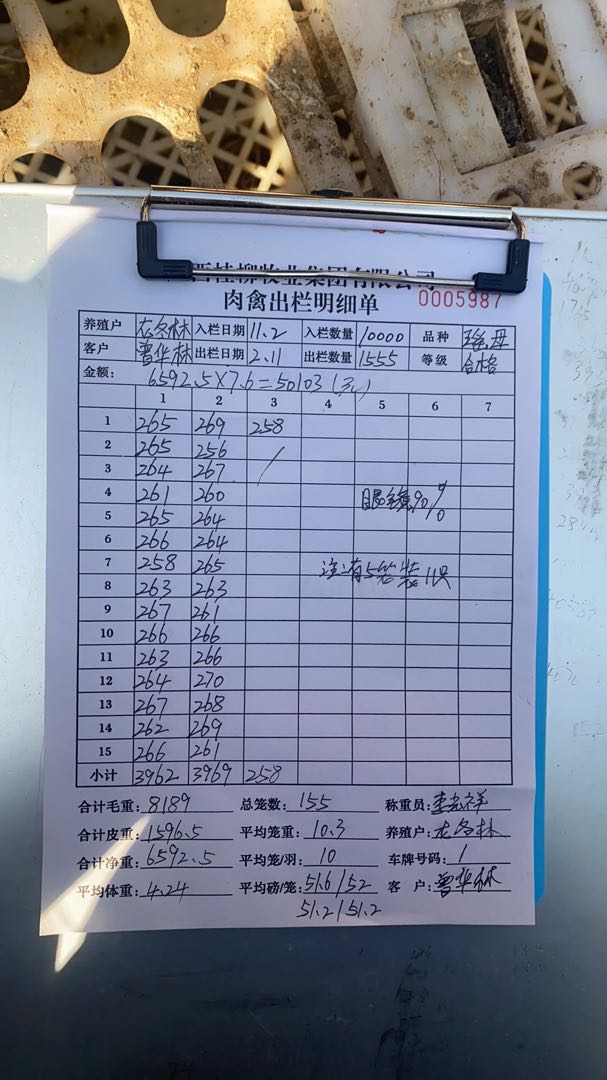 西桂柳牧业集团有限公司
肉禽出栏明细单 0005987
养殖户 龙冬林 入栏日期 11.2 入栏数量 10000 品种 瑶母
客户 曾华林 出栏日期 2.11 出栏数量 1555 等级 合格
金额: 6592.5×7.6=50103(元)
1 2 3 4 5 6 7
1 265 269 258
2 265 256 /
3 264 267
4 261 260 眼镜90%
5 265 264
6 266 264
7 258 265 注:有5笼装11只
8 263 263
9 267 261
10 266 266
11 263 266
12 264 270
13 267 268
14 262 269
15 266 261
小计 3962 3969 258
合计毛重: 8189 总笼数: 155 称重员:
合计皮重: 1596.5 平均笼重: 10.3 养殖户: 龙冬林
合计净重: 6592.5 平均笼/羽: 10 车牌号码: 1
平均体重: 4.24 平均磅/笼: 51.6/52 客 户: 曾华林
51.2/51.2